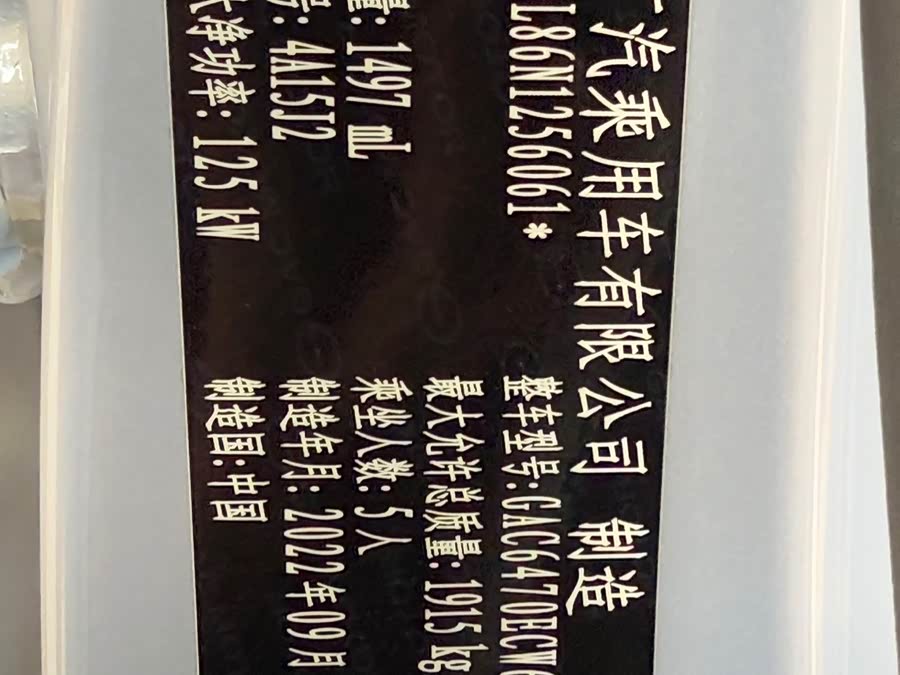 汽乘用车有限公司 制造
L86N1256061*
整车型号:GAC6470HCW6
最大允许总质量:1915 kg
量: 1497 mL
乘坐人数:5人
号: 4A15J2
制造年月: 2022年09月
大净功率: 125 kW
制造国:中国